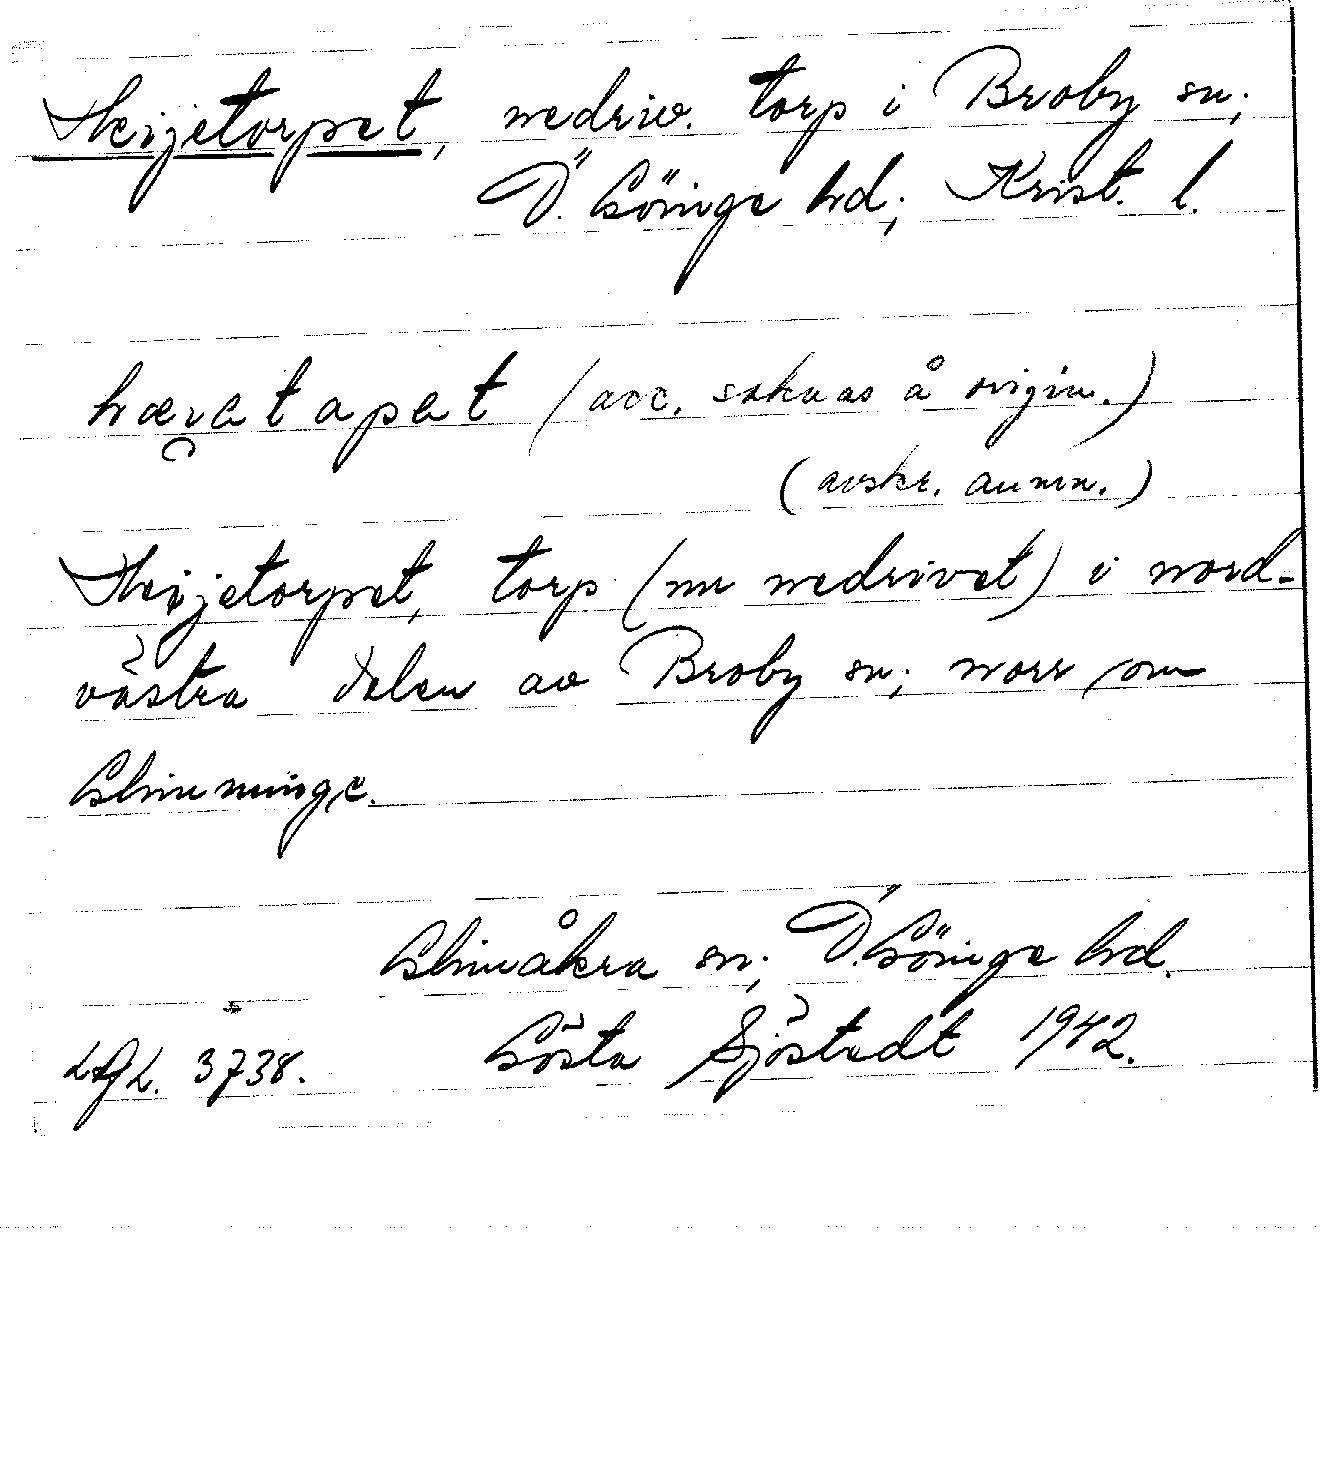 Heijetorpet, nedriv. torp i Broby sn;
Ö. Göinge hd; Krist. l.
(acc. saknas å origin.)
(avskr. anm.)
Heijetorpet, torp (nu nedrivet) i nord-
västra delen av Broby sn; norr om
Glimminge.
Glimåkra sn; Ö. Göinge hd.
LAL. 3738. Gösta Sjöstedt 1942.